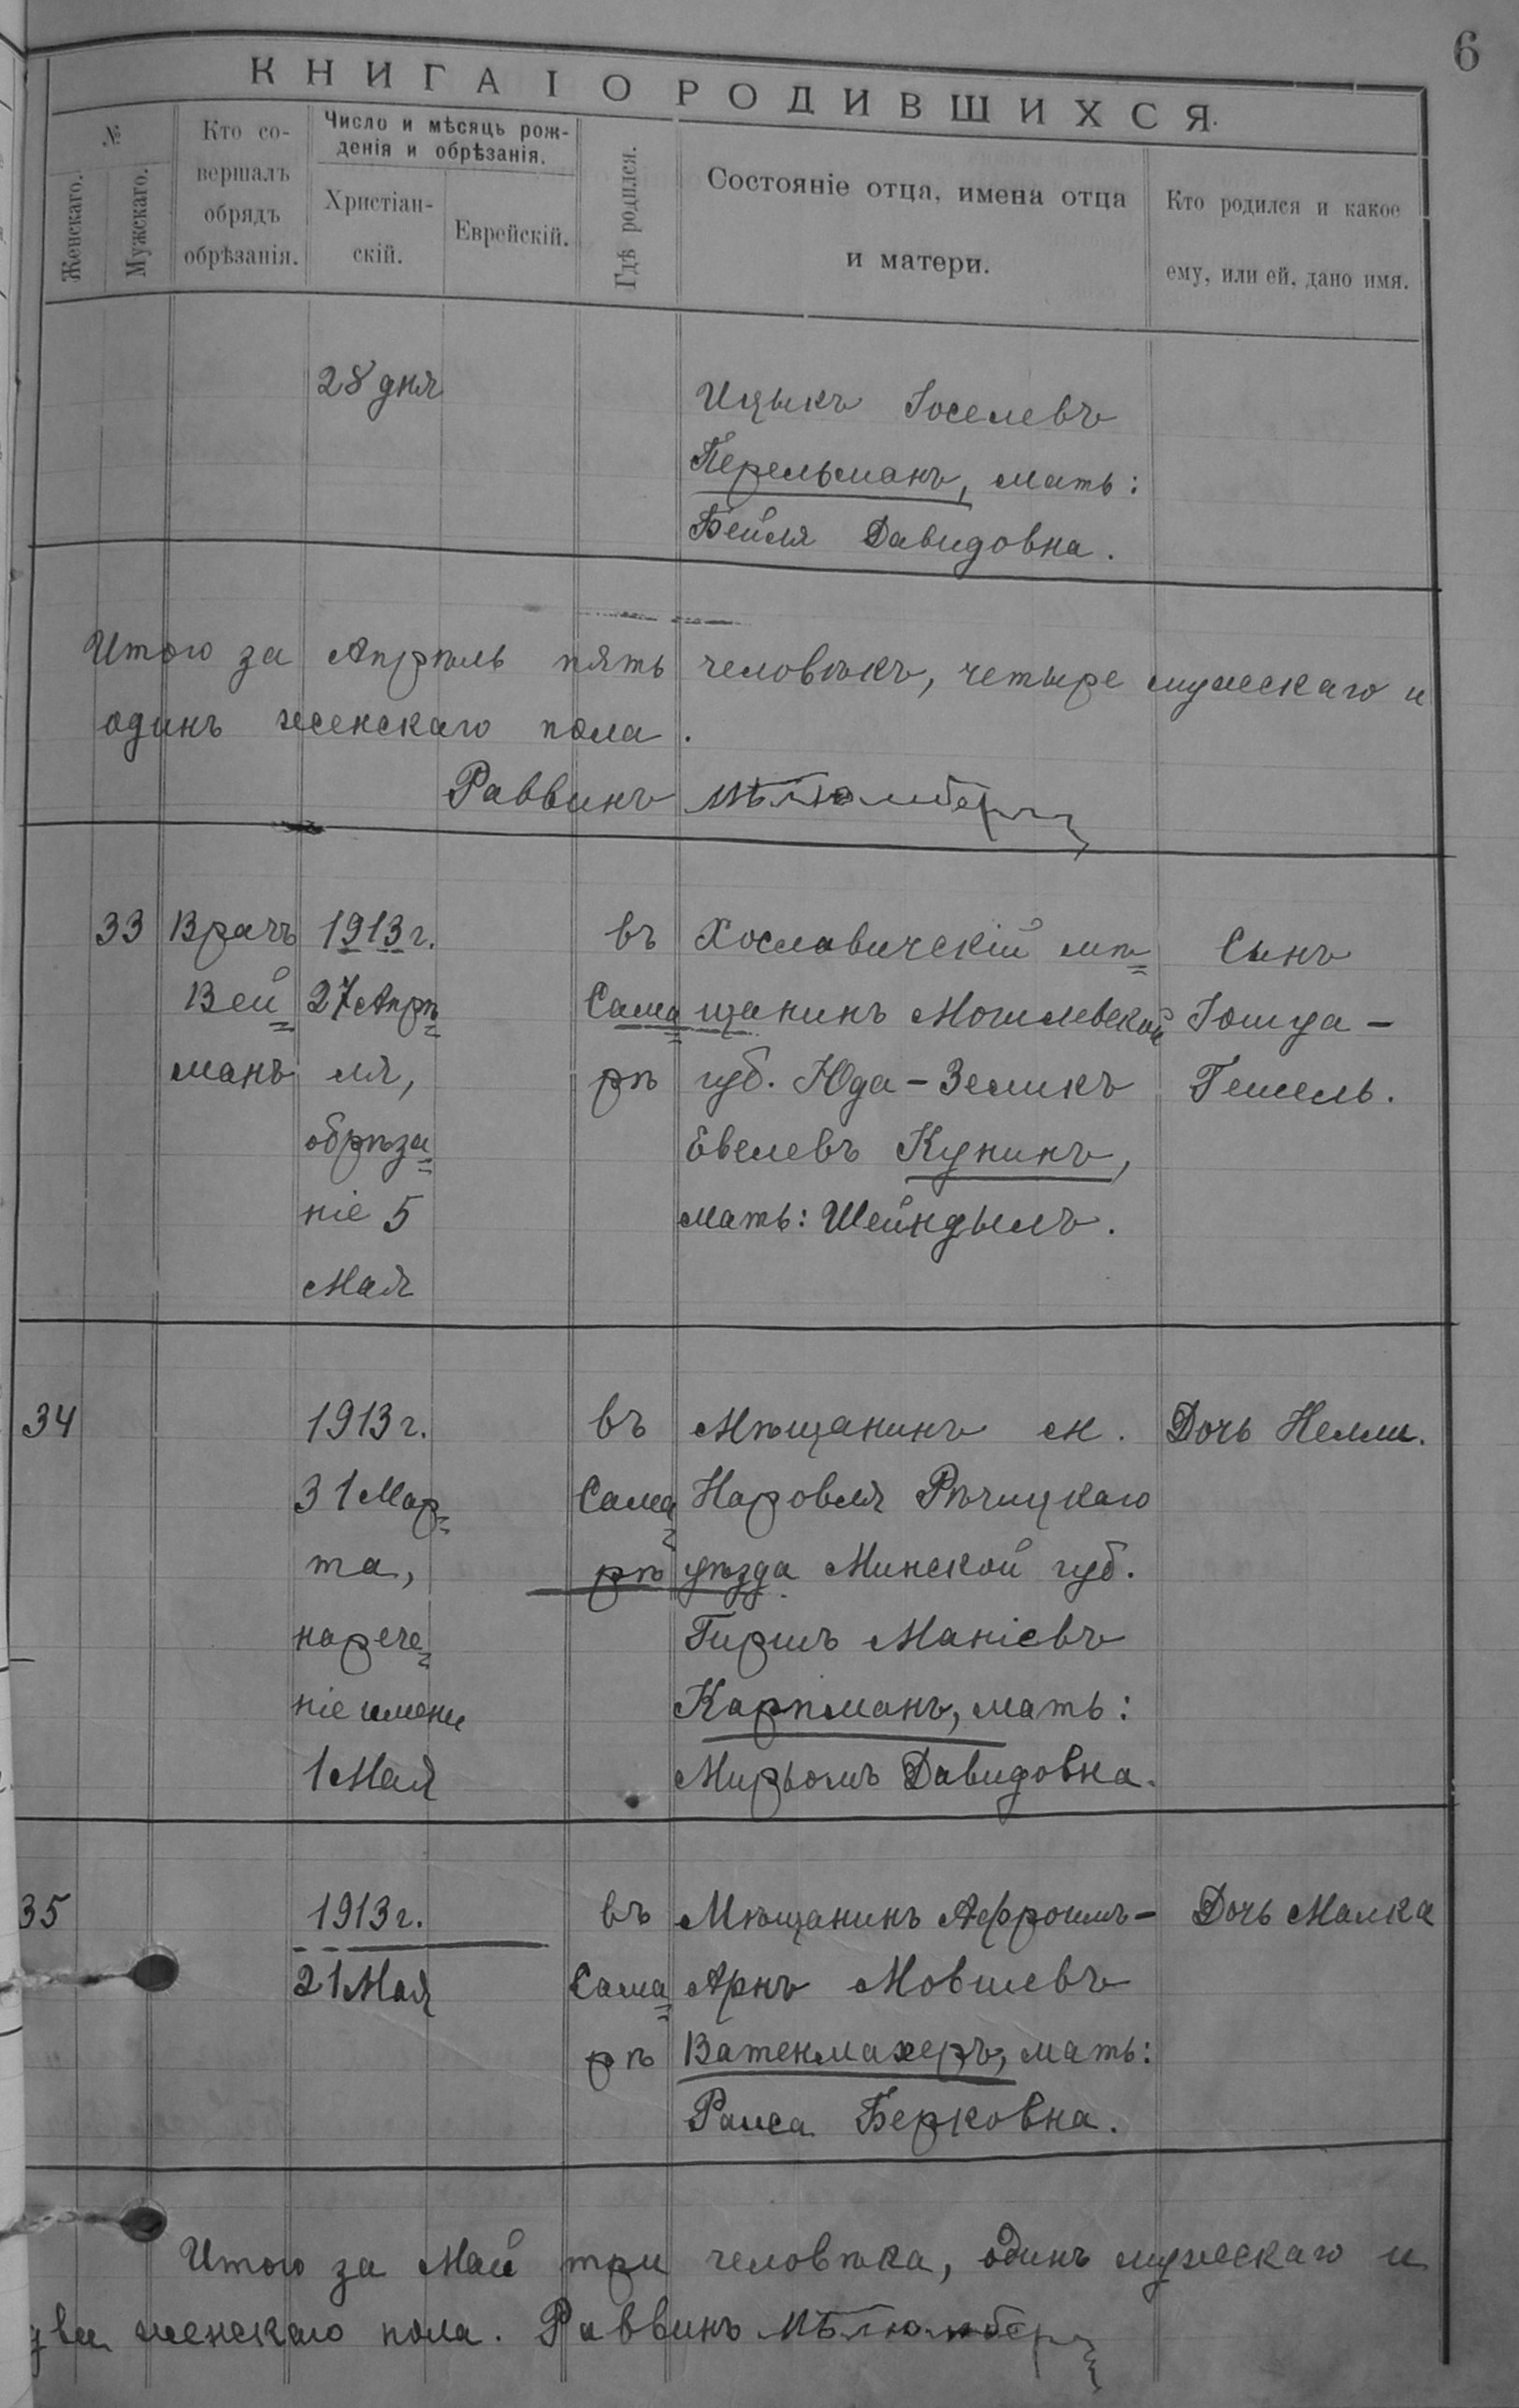 6
КНИГА I О РОДИВШИХСЯ.
№
Женскаго.
Мужскаго.
Кто со-
вершалъ
обрядъ
обрѣзанія.
Число и мѣсяцъ рож-
денія и обрѣзанія.
Христіан-
скій.
Еврейскій.
Гдѣ родился.
Состояніе отца, имена отца
и матери.
Кто родился и какое
ему, или ей, дано имя.
28 дня
Ицыкъ Іоселевъ
Перельманъ, мать:
Бейля Давидовна.
Итого за Апрѣль пять человѣкъ, четыре мужескаго и
одинъ женскаго пола.
Раввинъ
33
Врачъ
Вей
манъ
1913 г.
27 Апрѣ
ля,
обрѣза
ніе 5
Мая
въ
Сама
рѣ
Хославичскій мѣ
щанинъ Могилевской
губ. Юда-Зеликъ
Евелевъ Кунинъ,
мать: Шейндылъ.
Сынъ
Іошуа-
Гешель.
34
1913 г.
31 Мар
та,
нарече
ніе имени
1 Мая
въ
Сама
рѣ
Мѣщанинъ м.
Наровля Рѣчицкаго
уѣзда Минской губ.
Гиршъ Маніевъ
Карпманъ, мать:
Мирьомъ Давидовна.
Дочь Нелли.
35
1913 г.
21 Мая
въ
Сама
рѣ
Мѣщанинъ Афроимъ-
Арнъ Мовшевъ
Ватенмахеръ, мать:
Раиса Берковна.
Дочь Малка
Итого за Май три человѣка, одинъ мужескаго и
двѣ женскаго пола. Раввинъ